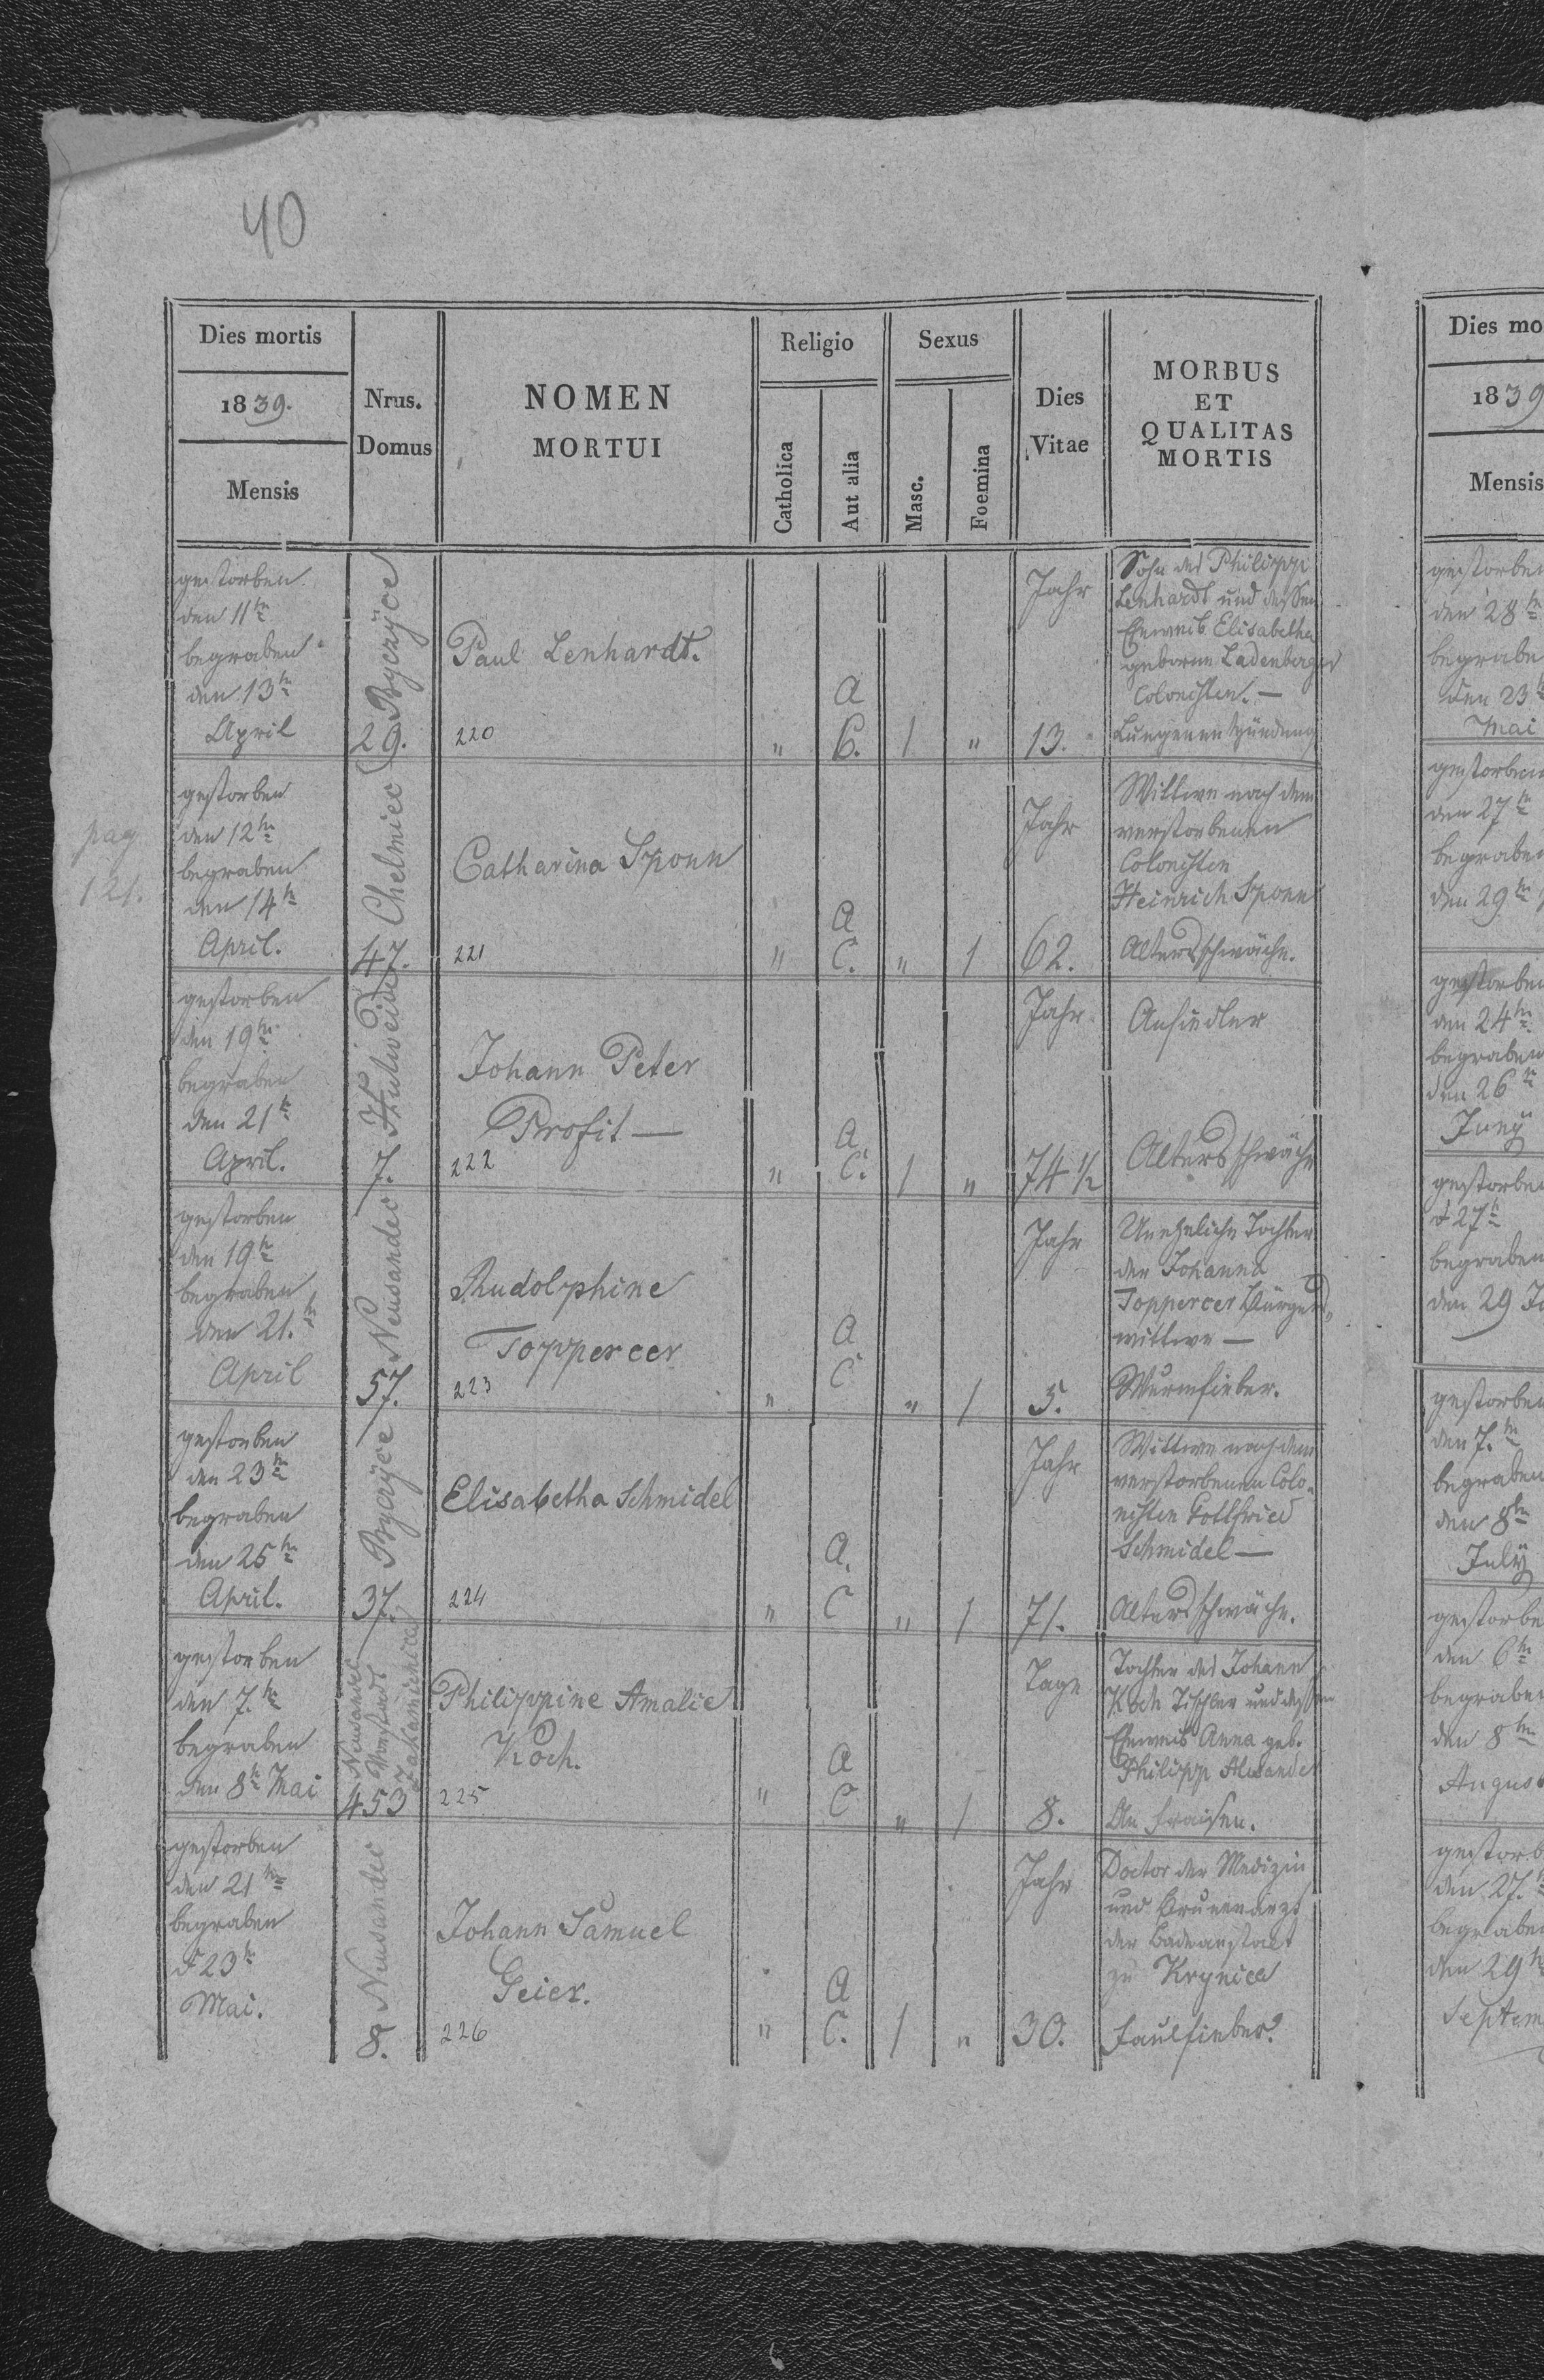 40
Dies mortis
1839.
Mensis
Nrus.
Domus
NOMEN
MORTUI
Religio
Catholica
Aut alia
Sexus
Masc.
Foemina
Dies
Vitae
MORBUS
ET
QUALITAS
MORTIS
gestorben
den 11tn
begraben
den 13tn
April
29. Byczyce
Paul Lenhardt.
220
"
A
C.
1
"
Jahr
13.
Sohn des Philipp
Lenhardt und dessen
Eheweib Elisabetha
geborne Ladenberger
Colonisten. —
Lungenentzündung
pag
121.
gestorben
den 12tn
begraben
den 14tn
April.
47. Chelmiec
Catharina Sponn
221
"
A
C.
"
1
Jahr
62.
Wittwe nach dem
verstorbenen
Colonisten
Heinrich Sponn
Altersschwäche.
gestorben
den 19tn
begraben
den 21tn
April.
7.
Johann Peter
Profit —
222
"
A
C.
1
"
Jahr
74 1/2
Ansiedler
Altersschwäche
gestorben
den 19tn
begraben
den 21.tn
April
57. Neusandec
Rudolphine
Toppercer
223
"
A
C
"
1
Jahr
5.
Uneheliche Tochter
der Johanna
Toppercer Bürgers-
wittwe —
Wurmfieber.
gestorben
den 23tn
begraben
den 25tn
April.
37. Byczyce
Elisabetha Schmidel
224
"
A.
C
"
1
Jahr
71.
Wittwe nach dem
verstorbenen Colo-
nisten Gottfried
Schmidel —
Altersschwäche.
gestorben
den 7.tn
begraben
den 8tn Mai
453
Neusandec
Vorstadt
Zakamienica
Philippine Amalie
Koch.
225
"
A
C
"
1
Tage
8.
Tochter des Johann
Koch Tischler und dessen
Eheweib Anna geb.
Philipp Alexander
An Fraisen.
gestorben
den 21tn
begraben
d 23tn
Mai.
8. Neusandec
Johann Samuel
Geier.
226
"
A
C.
1
"
Jahr
30.
Doctor der Medizin
und Brunenarzt
der Badeanstalt
zu Krynica
Faulfieber.
Dies mo
1839
Mensis
gestorben
den 28tn
begrabe
den 23t
Mai
gestorben
den 27tn
begraben
den 29tn
gestorben
den 24tn
begraben
den 26tn
Juny
gestorben
d 27tn
begraben
den 29 Ju
gestorben
den 7.tn
begraben
den 8tn
July
gestorbe
den 6tn
begraben
den 8tn
August
gestorb
den 27.t
begraben
den 29t
Septem